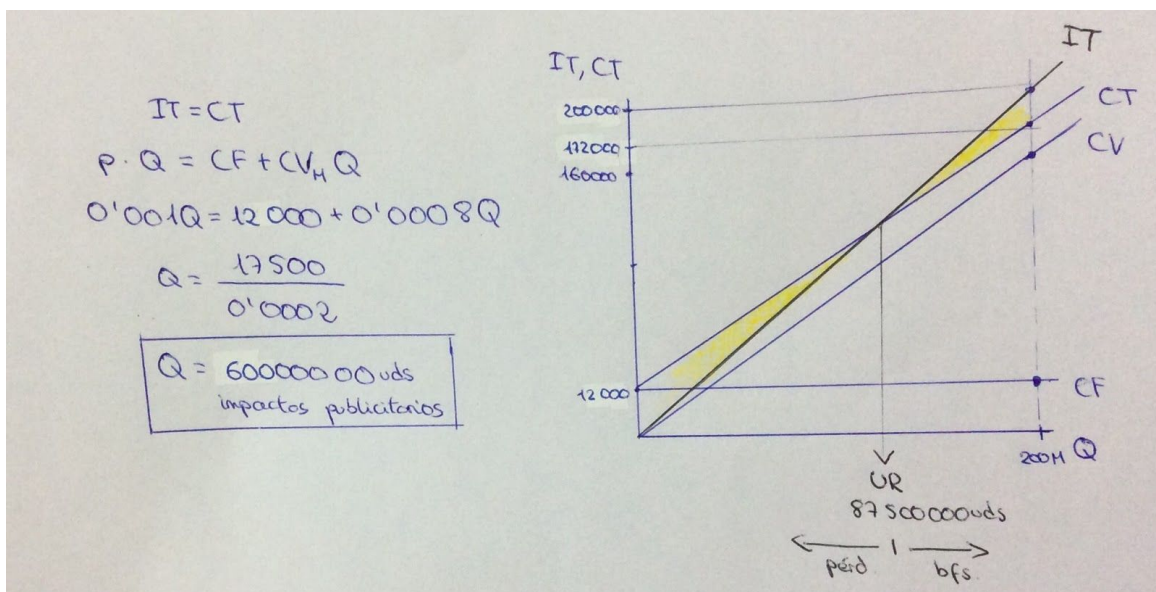 IT = CT
p · Q = CF + CVM Q
0'001Q = 12 000 + 0'0008Q
Q = 17500
0'0002
Q = 60000000 uds
impactos publicitarios
IT, CT
200000
172000
160000
12000
IT
CT
CV
CF
200M Q
UR
87500000uds
pérd.
bfs.